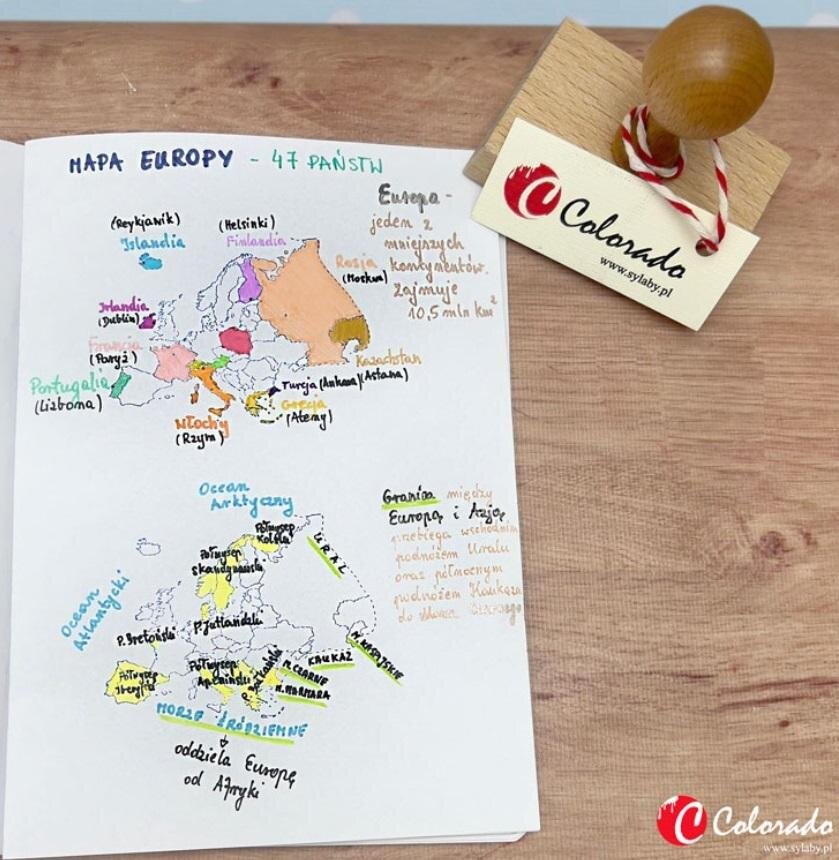 MAPA EUROPY - 47 PAŃSTW
Europa -
jeden z
mniejszych
kontynentów.
Zajmuje
10,5 mln km²
(Reykjawik)
Islandia
(Helsinki)
Finlandia
Rosja
(Moskwa)
Irlandia
(Dublin)
Francja
(Paryż)
Kazachstan
(Astana)
Portugalia
(Lizbona)
Turcja (Ankara)
Grecja
(Ateny)
Włochy
(Rzym)
Ocean
Arktyczny
Granica między
Europą i Azją
przebiega wschodnim
podnóżem Uralu
oraz północnym
podnóżem Kaukazu
do Morza
Półwysep
Kolski
URAL
Półwysep
Skandynawski
Ocean
Atlantycki
P. Jutlandzki
P. Bretoński
M. KASPIJSKIE
KAUKAZ
Półwysep
Iberyjski
Półwysep
Apeniński
P. Bałkański
M. CZARNE
M. MARMARA
MORZE ŚRÓDZIEMNE
oddziela Europę
od Afryki
Colorado
www.sylaby.pl
Colorado
www.sylaby.pl